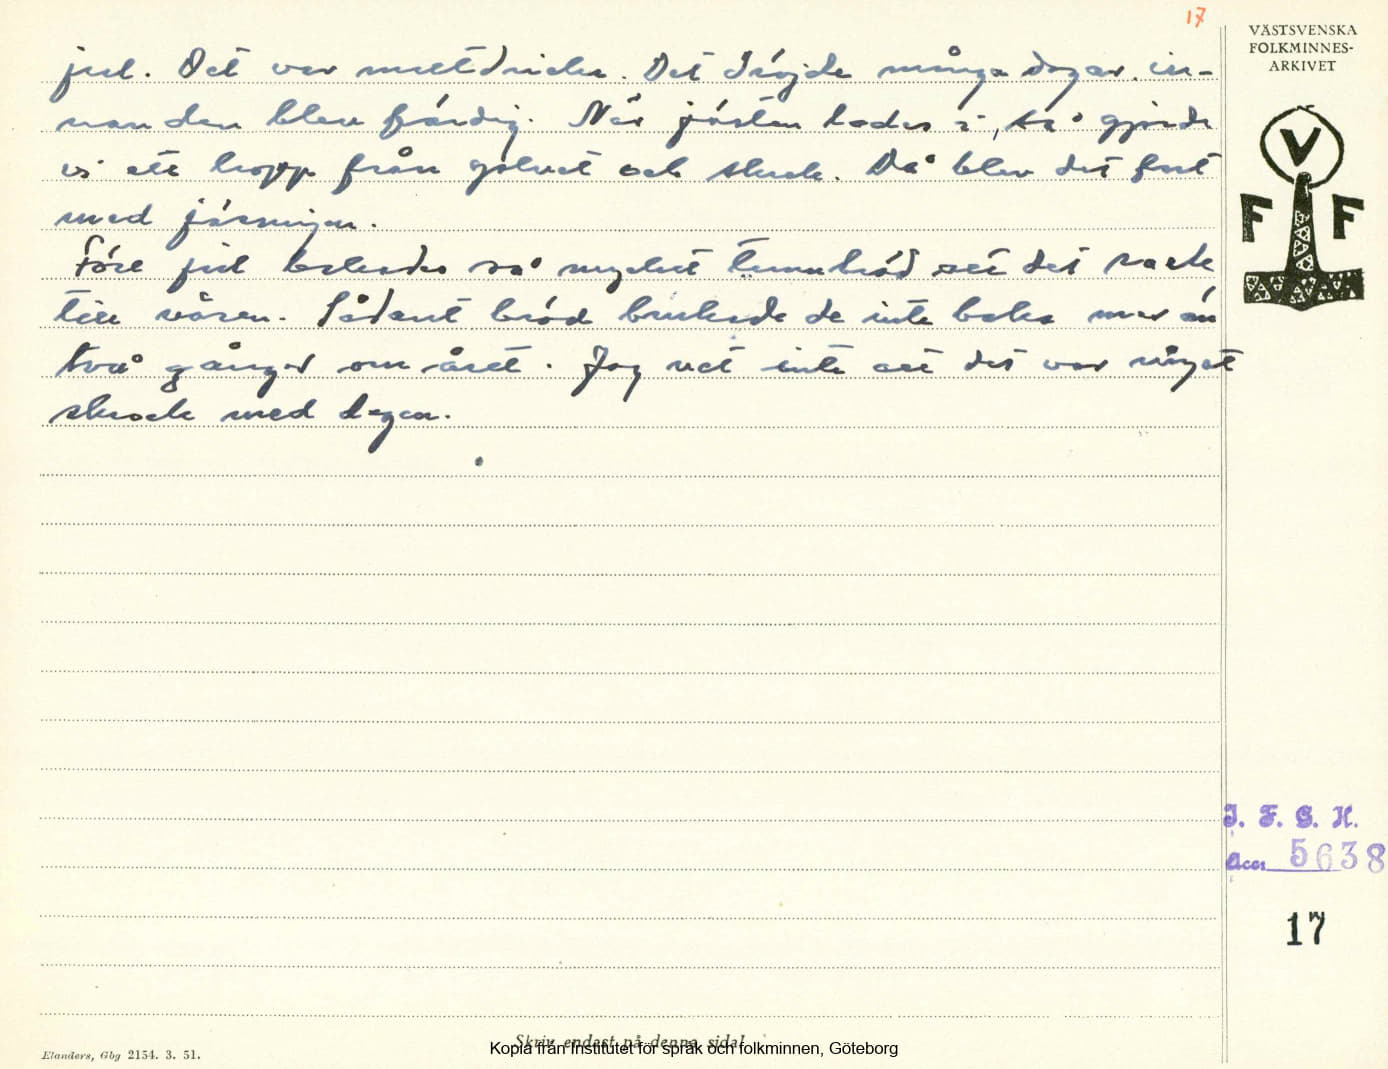 17
VÄSTSVENSKA
FOLKMINNES-
ARKIVET
jul. Det var maltdricka. Det dröjde många dagar in-
nan den blev färdig. När jästen hades i, så gjorde
vi ett hopp från golvet och skrek. Då blev det fart
med jäsningen.
Före jul bakades så mycket tunnbröd att det räckte
till våren. Sådant bröd brukade de inte baka mer än
två gånger om året. Jag vet inte att det var något
skrock med degen.
V
F F
I. F. G. H.
Acc. 5638
17
Skriv endast på denna sida!
Kopia från Institutet för språk och folkminnen, Göteborg
Elanders, Gbg 2154. 3. 51.